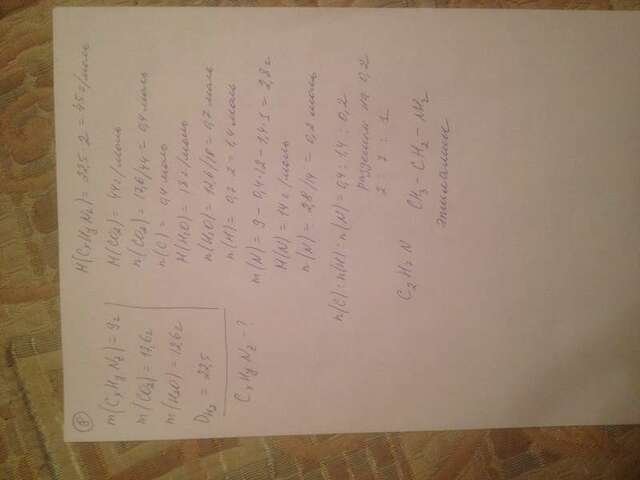 8
m(CxHyNz) = 9г
m(CO2) = 17,6г
m(H2O) = 12,6г
DH2 = 22,5
CxHyNz - ?
M(CxHyNz) = 22,5 · 2 = 45 г/моль
M(CO2) = 44 г/моль
n(CO2) = 17,6/44 = 0,4 моль
n(C) = 0,4 моль
M(H2O) = 18 г/моль
n(H2O) = 12,6/18 = 0,7 моль
n(H) = 0,7 · 2 = 1,4 моль
m(N) = 9 - 0,4·12 - 1,4·1 = 2,8 г
M(N) = 14 г/моль
n(N) = 2,8/14 = 0,2 моль
n(C) : n(H) : n(N) = 0,4 : 1,4 : 0,2
разделим на 0,2
2 : 7 : 1
C2H7N
CH3 - CH2 - NH2
этиламин